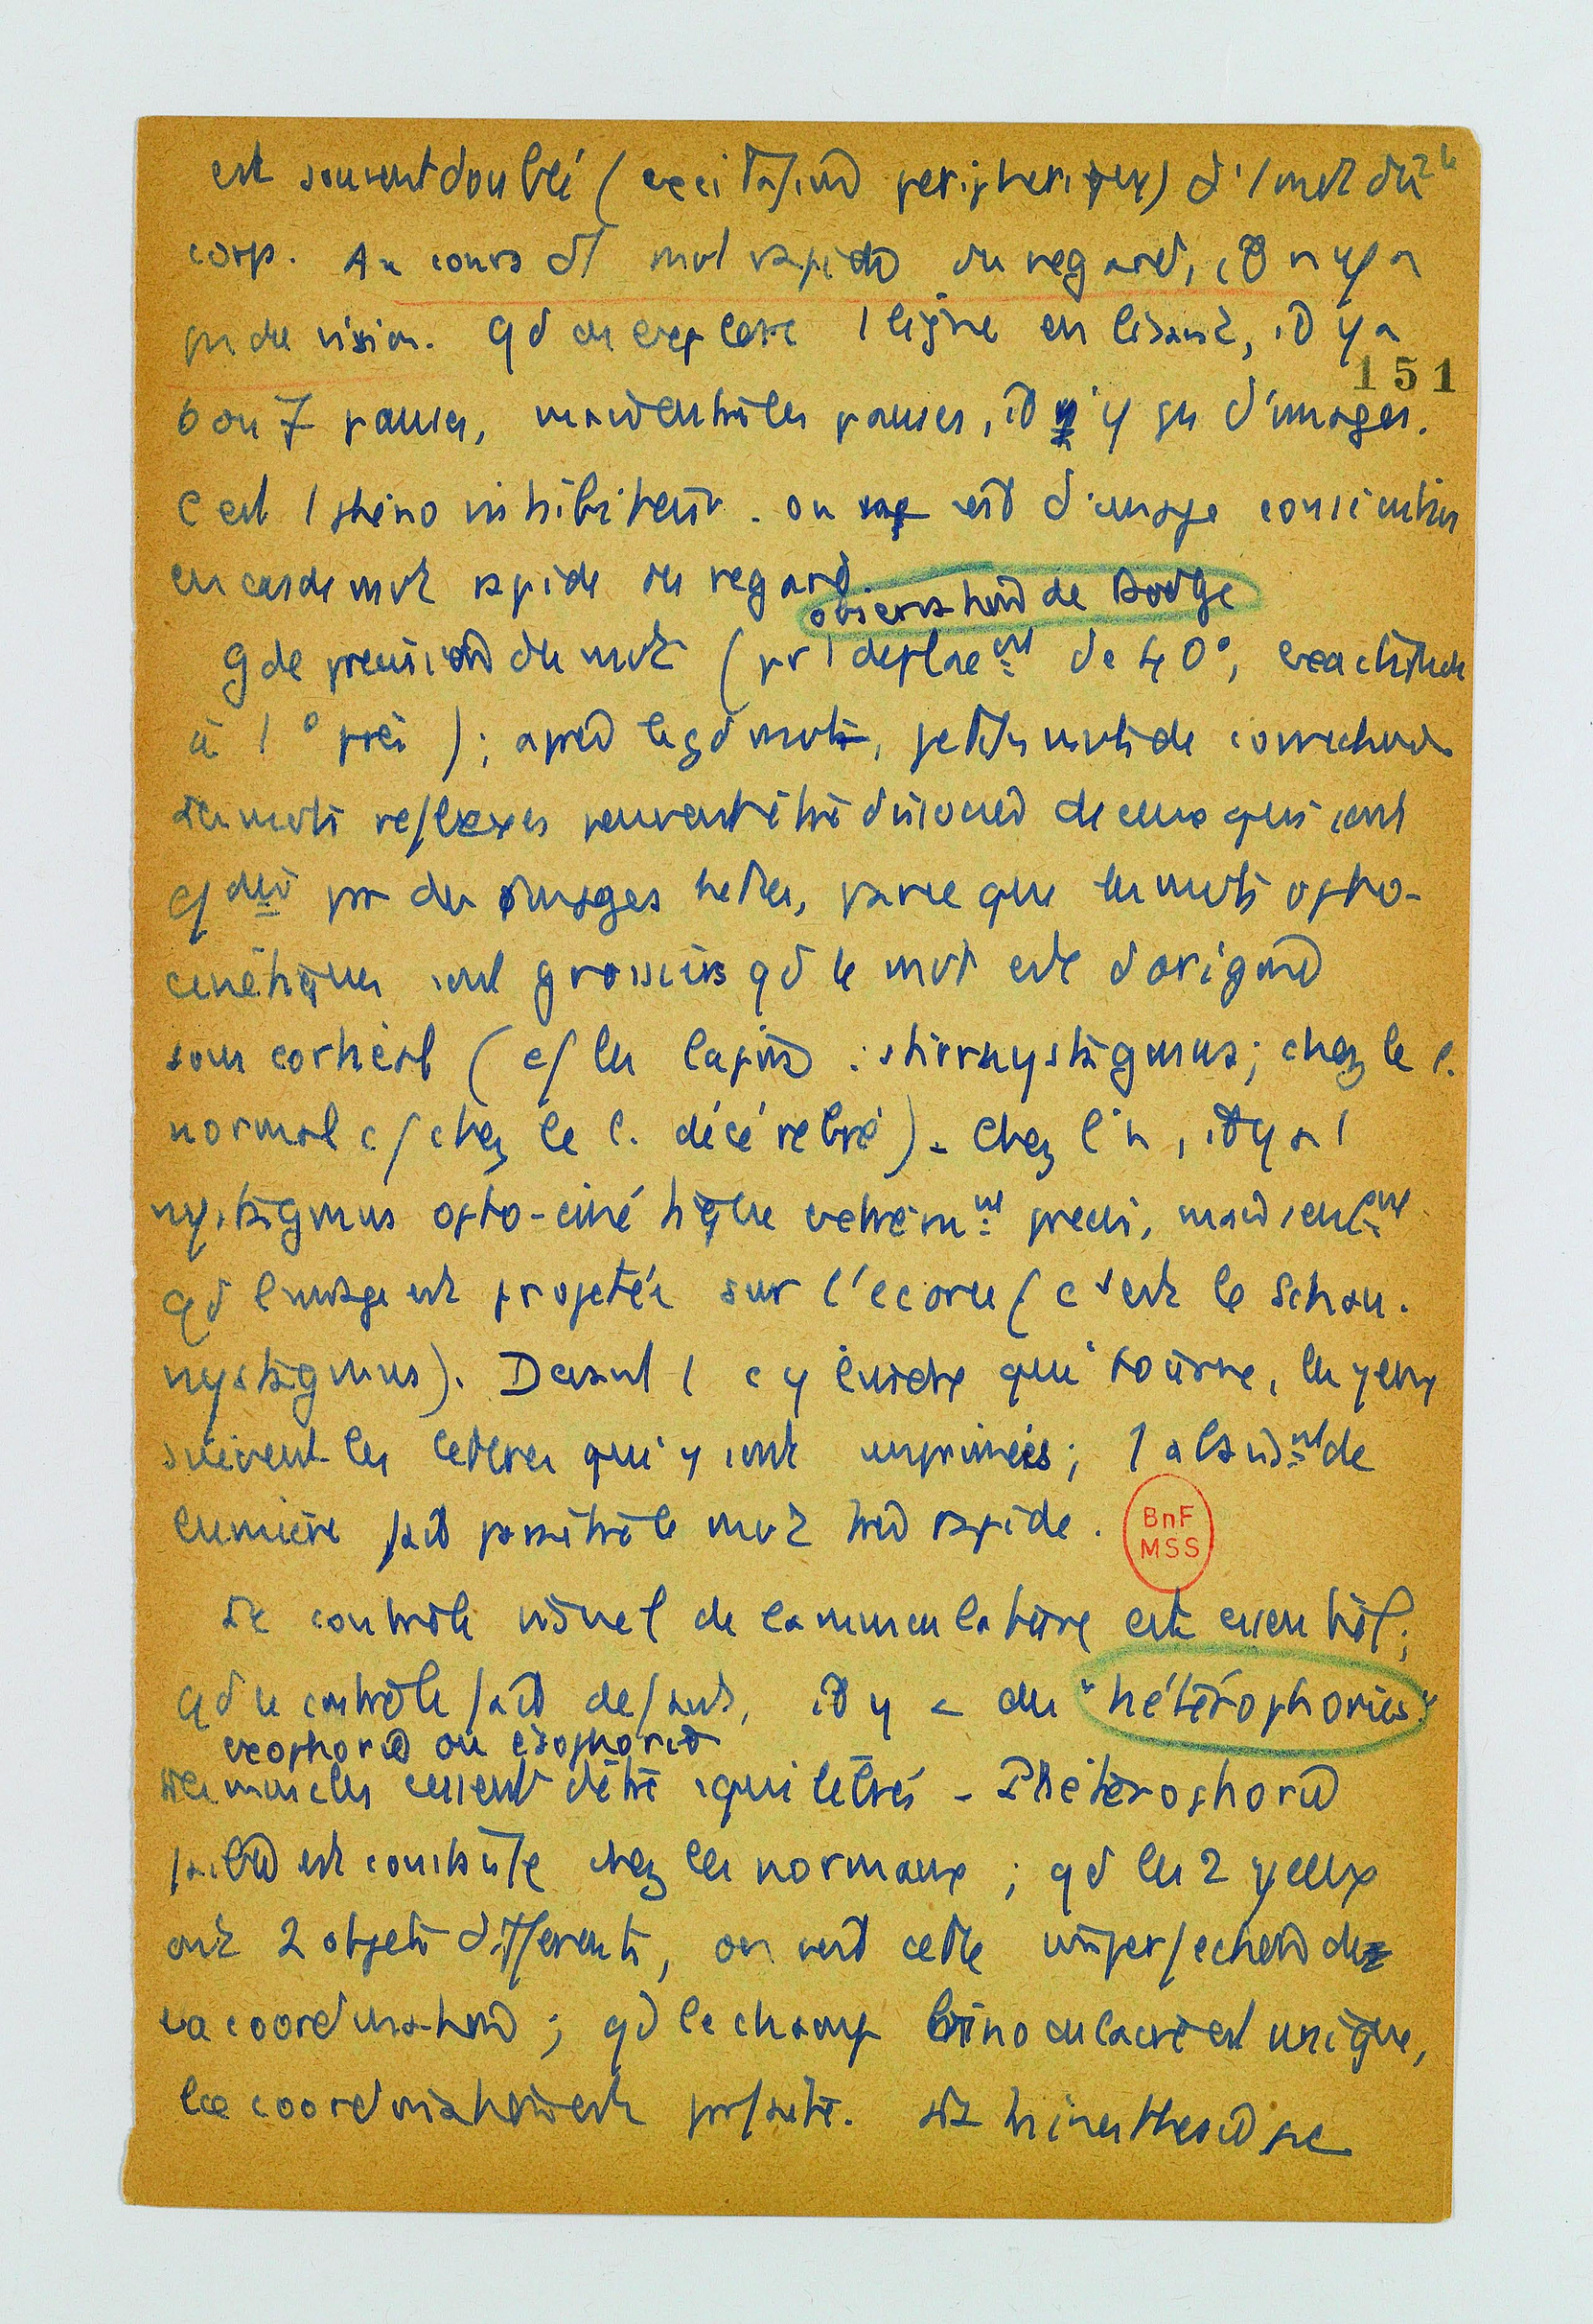 est souvent doublé (excitation périphérique) d'1 mvt du
corps. Au cours d'1 mvt rapide du regard, il n'y a
pas de vision. Qd on explore 1 ligne en lisant, il y a
151
6 ou 7 pauses, mais entre les pauses, il n'y a pas d'images.
C'est 1 phéno inhibiteur. on d'image consciente
en cas de mvt rapide du regard.
observation de Dodge
Gde précision du mvt (pr 1 déplacement de 40°, exactitude
à 1° près) ; après le gd mvt, petits mvts de correction
Les mvts réflexes peuvent être dissociés de ceux qui sont
pr des images nettes, parce que les mvts opto-
cinétiques sont grossiers qd le mvt est d'origine
sous corticale (cf les lapins : stirnystagmus ; chez le l.
normal c/ chez le l. décérébré). Chez l'h, il y a 1
nystagmus opto-cinétique extrêmnt précis, mais seulement
qd l'image est projetée sur l'écorce (c'est le Schau-
nystagmus). Devant 1 cylindre qui tourne, les yeux
suivent les lettres qui y sont imprimées ; 1 abaisnt de
lumière fait paraître le mvt très rapide.
BnF
MSS
Le contrôle visuel de la musculature est essentiel ;
qd ce contrôle fait défaut, il y a des "hétérophories"
exophorie ou ésophorie
Les muscles cessent d'être équilibrés - L'hétérophorie
faible est constante chez les normaux ; qd les 2 yeux
ont 2 objets différents, on voit cette imperfection de
la coordination ; qd le champ binoculaire est unique,
la coordination est parfaite. La kinesthésie ne